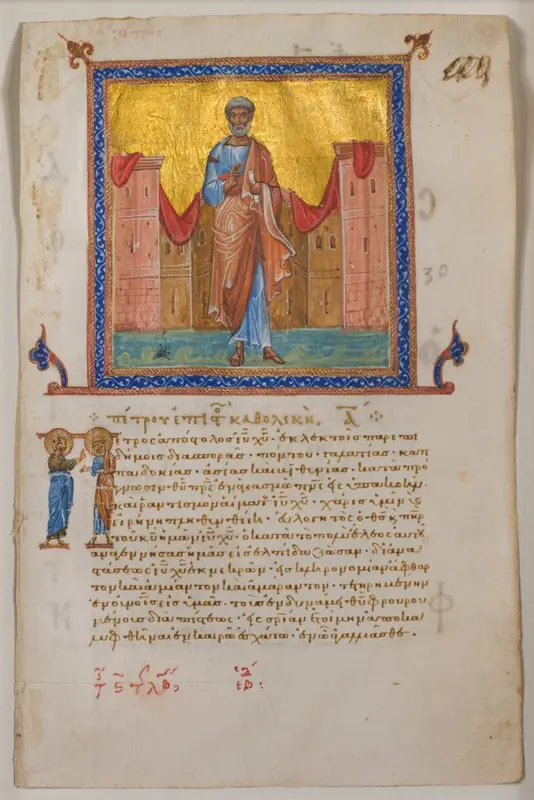 ΠΕΤΡΟΥ ΕΠΙϹΤΟΛΗ ΚΑΘΟΛΙΚΗ. Α̅
Πέτρος ἀπόστολος ι̅υ̅ χ̅υ̅· ἐκλεκτοῖς παρεπι
δήμοις διασπορᾶς· πόντου· γαλατίας· καπ
παδοκίας· ἀσίας καὶ βιθυνίας· κατὰ πρό
γνωσιν θ̅υ̅ π̅ρ̅ς̅ ἐν ἁγιασμῶ π̅ν̅ς̅ εἰς ὑπακοὴν.
καὶ ῥαντισμὸν αἵματος ι̅υ̅ χ̅υ̅· χάρις ὑμῖν ϗ
εἰρήνη πληθυνθείη· εὐλογητὸς ὁ θ̅ς̅ ϗ π̅η̅ρ̅
τοῦ κ̅υ̅ ἡμῶν ι̅υ̅ χ̅υ̅· ὁ κατὰ τὸ πολὺ ἔλεος αὐτοῦ
ἀναγεννήσας ἡμᾶς εἰς ἐλπίδα ζῶσαν· δι' ἀνα
στάσεως ι̅υ̅ χ̅υ̅ ἐκ νεκρῶν· εἰς κληρονομίαν ἄφθαρ
τον καὶ ἀμίαντον καὶ ἀμάραντον· τετηρημένην
ἐν οὐνοῖς εἰς ὑμᾶς· τοὺς ἐν δυνάμει θ̅υ̅ φρουρου
μένους διὰ πίστεως· εἰς σ̅ρ̅ίαν ἑτοίμην ἀποκα
λυφθῆναι ἐν καιρῶ ἐσχάτω· ἐν ὧ ἀγαλλιᾶσθε.